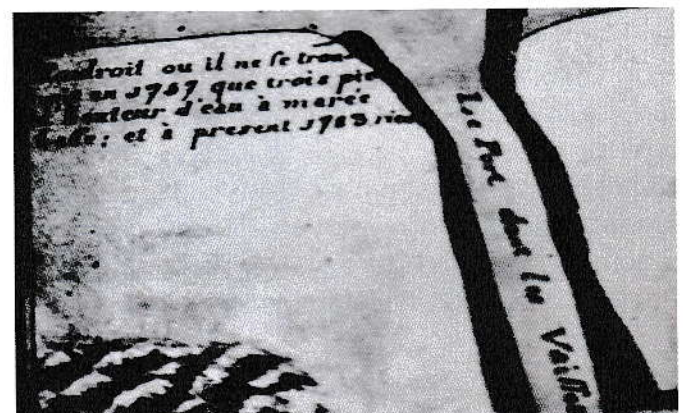 Endroit ou il ne se trou-
en 1757 que trois pie
hauteur d'eau à marée
basse; et à present 1763 rien
Le Port dont les Vaisse